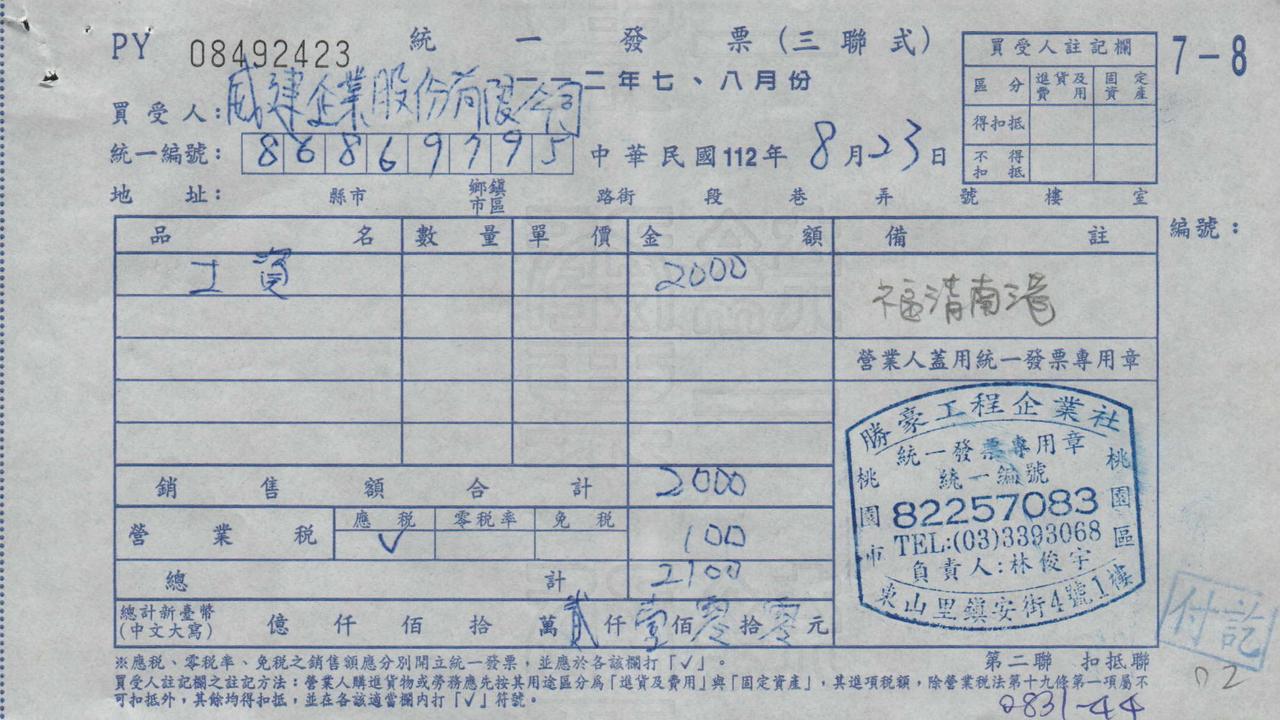 PY 08492423 統一發票(三聯式) 7-8
一一二年七、八月份
買受人:威建企業股份有限公司
統一編號:86869795 中華民國112年8月23日
地址: 縣市 鄉鎮市區 路街 段 巷 弄 號 樓 室
買受人註記欄
區分 進貨及費用 固定資產
得扣抵
不得扣抵
編號:
品名 數量 單價 金額 備註
工資 2000 福清南港
營業人蓋用統一發票專用章
銷售額合計 2000
營業稅 應稅 零稅率 免稅
✓ 100
總計 2100
總計新臺幣(中文大寫) 億 仟 佰 拾 萬 貳仟 壹佰 零拾 零元
勝豪工程企業社
統一發票專用章
統一編號
82257083
TEL:(03)3393068
負責人:林俊宇
桃園市桃園區
東山里鎮安街4號1樓
付訖
※應稅、零稅率、免稅之銷售額應分別開立統一發票,並應於各該欄打「✓」。
第二聯 扣抵聯
買受人註記欄之註記方法:營業人購進貨物或勞務應先按其用途區分為「進貨及費用」與「固定資產」,其進項稅額,除營業稅法第十九條第一項屬不
可扣抵外,其餘均得扣抵,並在各該適當欄內打「✓」符號。
0831-44